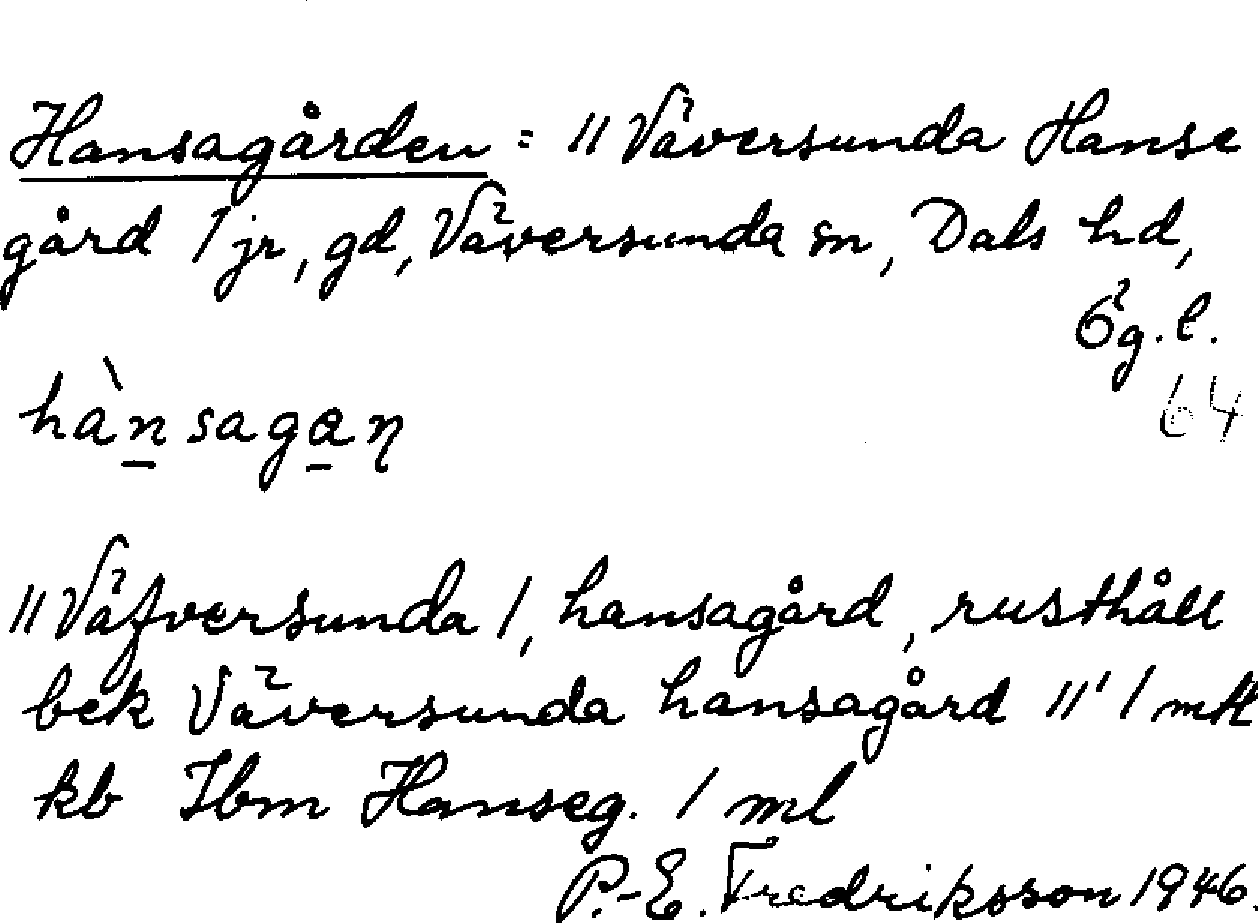 Hansagården = " Väversunda Hanse
gård 1 jr, gd, Väversunda sn, Dals hd,
Ög. l.
64
hànsagaɳ
" Väfversunda 1, hansagård, rusthåll
bek Väversunda hansagård "' 1 mtl
kb Ibm Hanseg. 1 ml
P.-E. Fredriksson 1946.